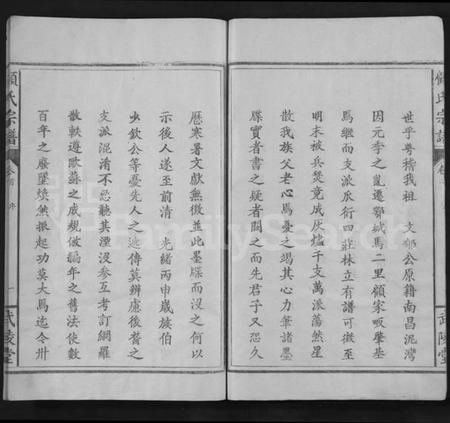 世乎粤稽我祖 文郁公原籍南昌泥灣
因元季之亂遷鄂城馬二里顧宋畈肇基
焉繼而支派炭衍四莊林立有譜可徵至
明末被兵燹竟成灰燼千支萬派蕩然星
散我族父老心焉憂之竭其心力筆諸墨
牒實者書之疑者闕之而先君子又恐久
歷寒暑文獻無徵並此墨牒而没之何以
示後人遂至前清 光緒丙申歲族伯
少欽公等憂先人之迹傳莫辨慮後督之
支派混淆不忍聽其湮没参互考訂網羅
散軼遵歐蘇之成規倣編年之舊法使數
百年之廢墜煥然振起功莫大焉迄今卅
顧氏宗譜
卷首 序 一
武陵堂
顧氏宗譜
武陵堂
FamilySearch